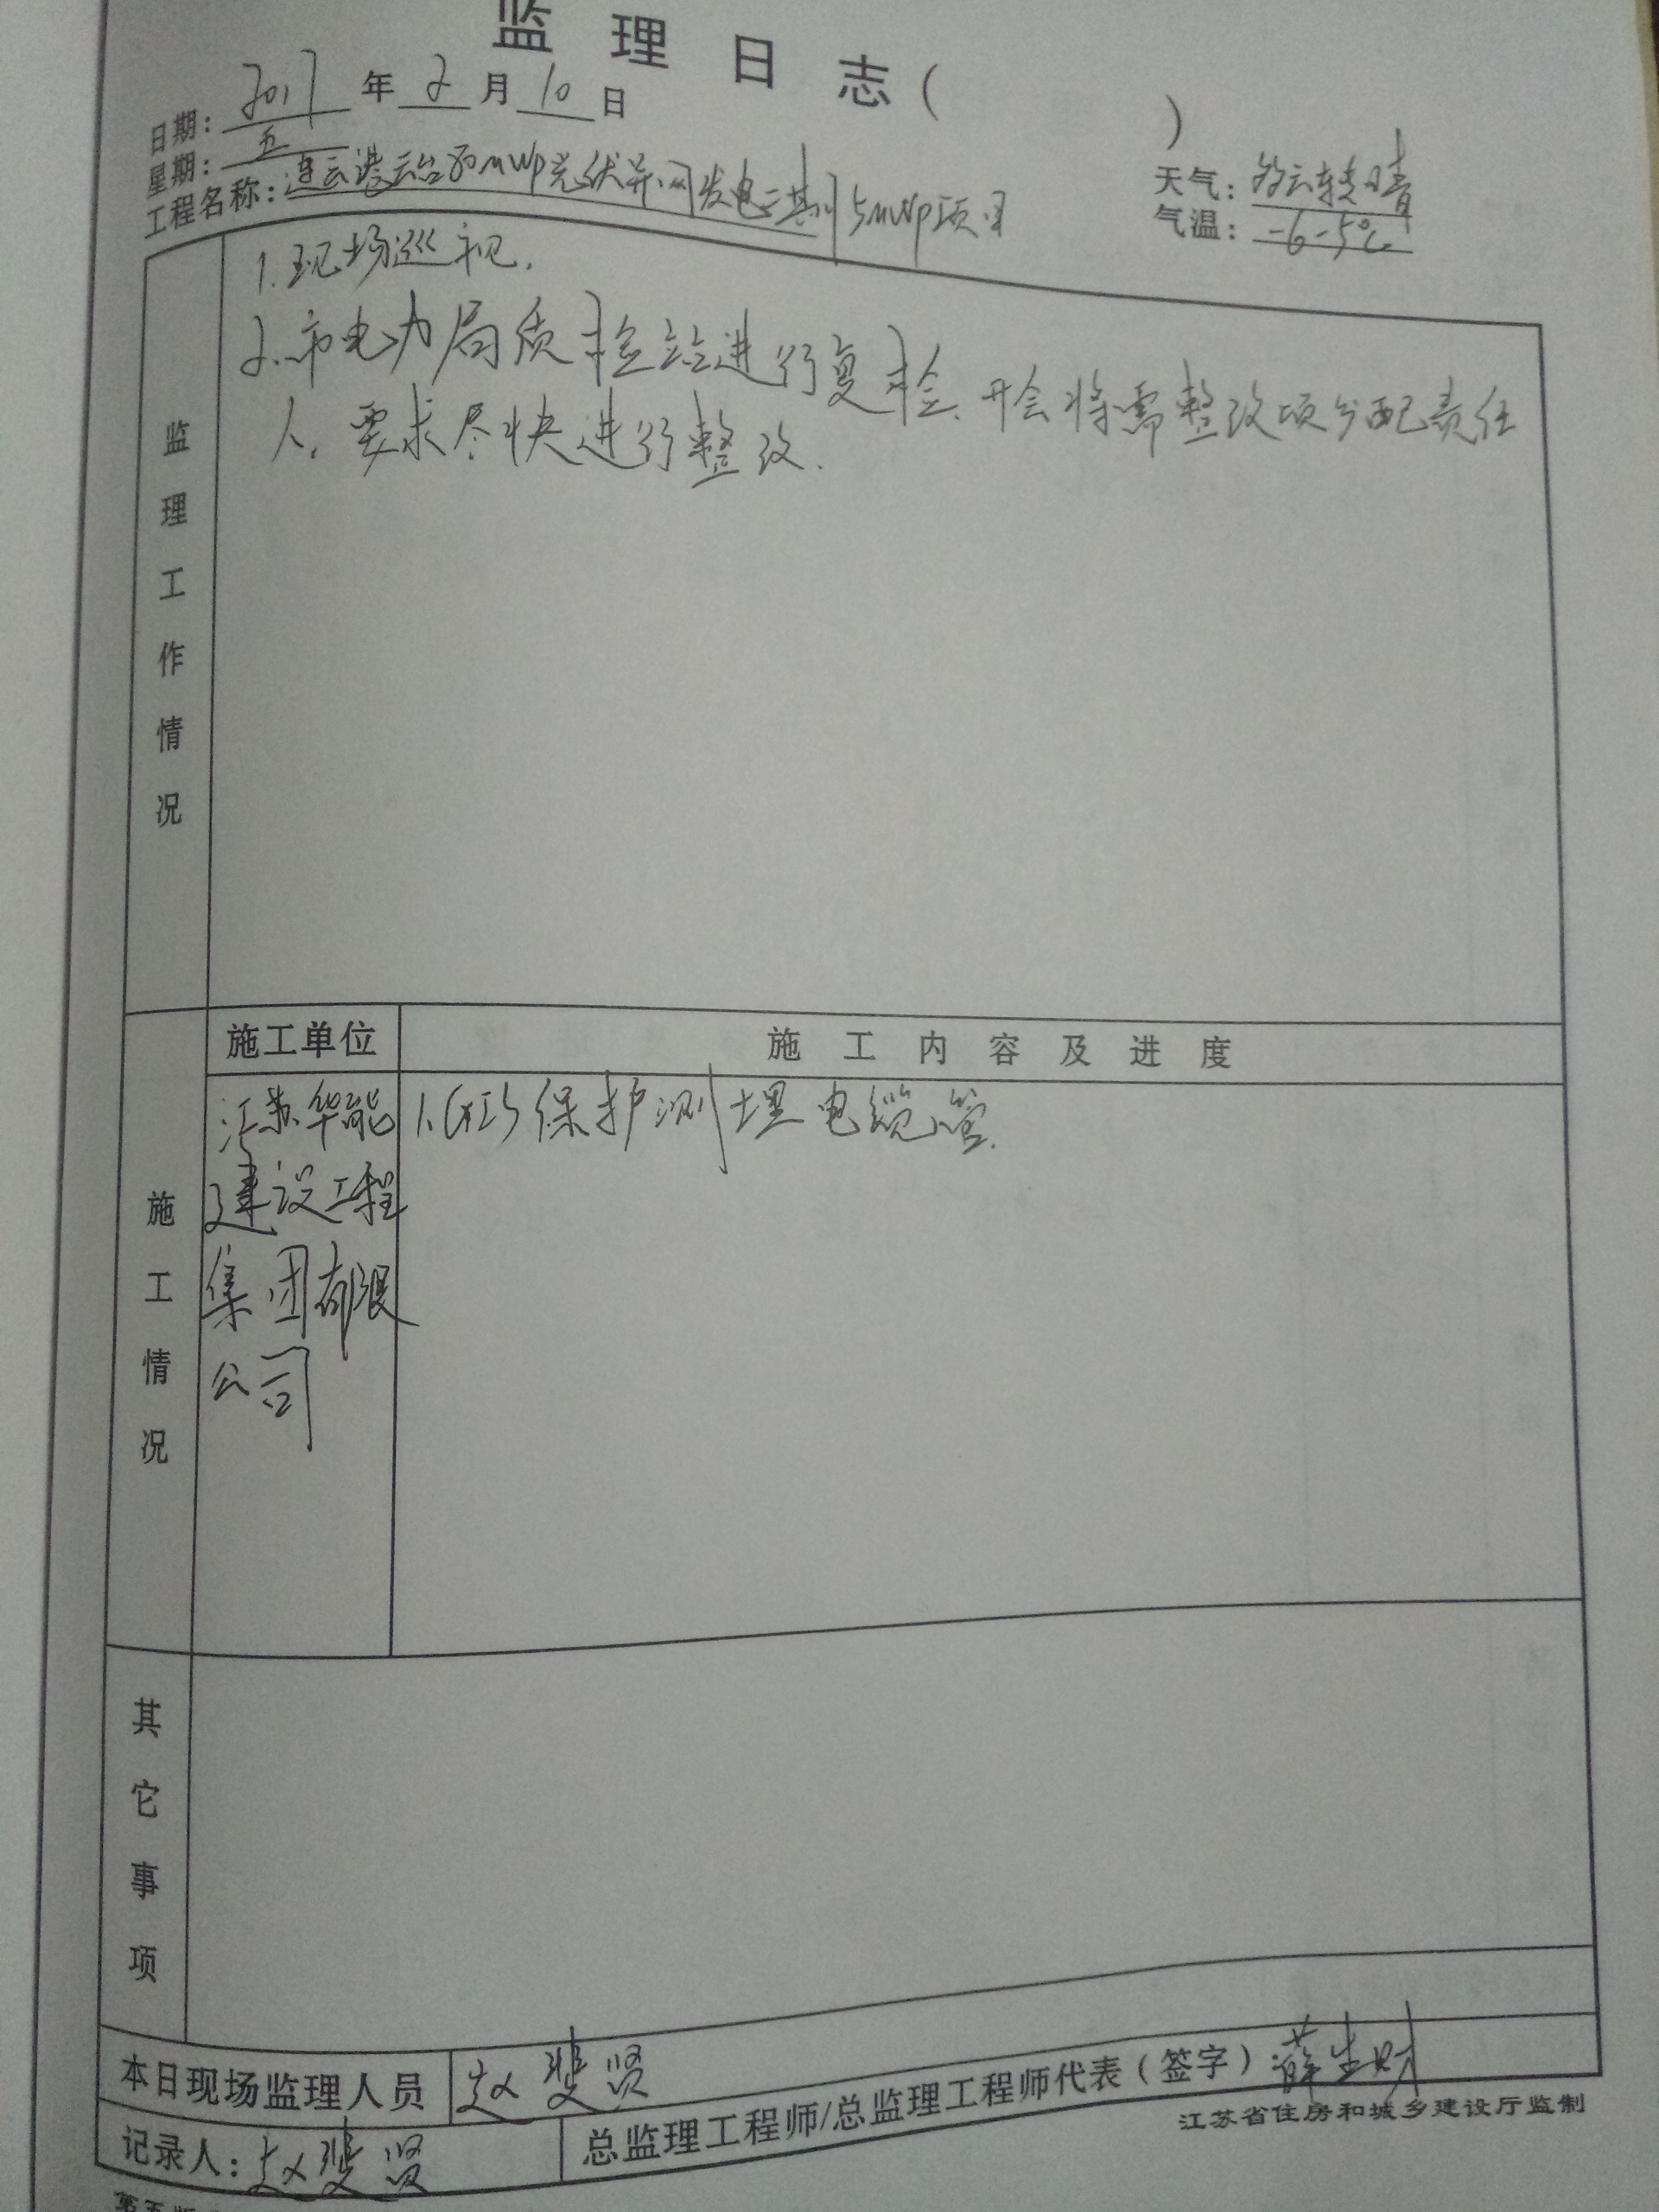 监理日志（ ）
日期：2017年2月10日
星期：五
工程名称：连云港云台80MWp光伏并网发电二期15MWp项目
天气：多云转晴
气温：-6-5℃
监理工作情况
1.现场巡视.
2.市电力局质检站进行复检.开会将需整改项分配责任
人.要求尽快进行整改.
施工情况
施工单位
施工内容及进度
江苏华能
建设工程
集团有限
公司
1. 保护测埋电缆管.
其它事项
本日现场监理人员 赵斐贤
记录人：赵斐贤
总监理工程师/总监理工程师代表（签字）：薛生财
江苏省住房和城乡建设厅监制